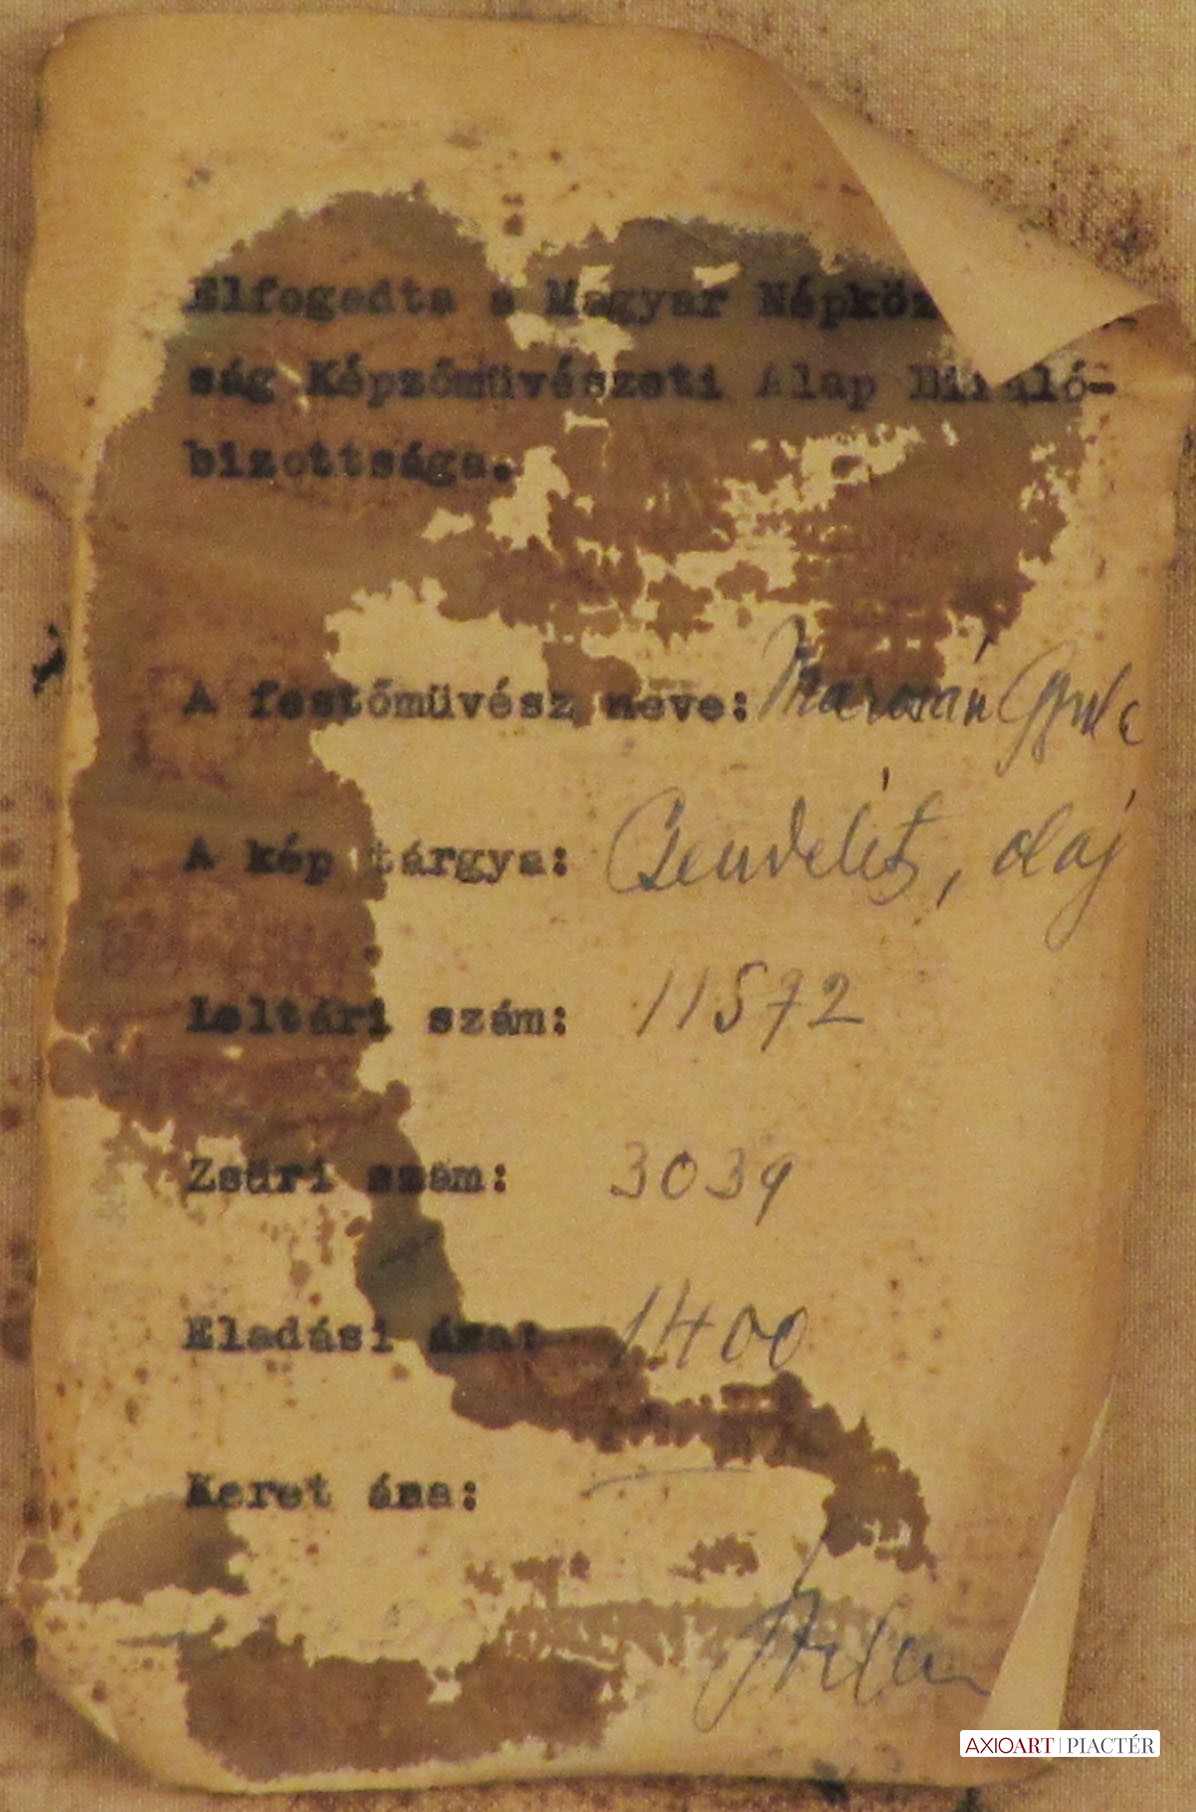 Elfogadta a Magyar Népköz
ság Képzőmüvészeti Alap Biráló-
bizottsága.
A festőmüvész neve: Marosán Gyula
A kép tárgya: Csendélet, olaj
Leltári szám: 11572
Zsüri szám: 3039
Eladási ára: 1400
Keret ára: —
AXIOART | PIACTÉR